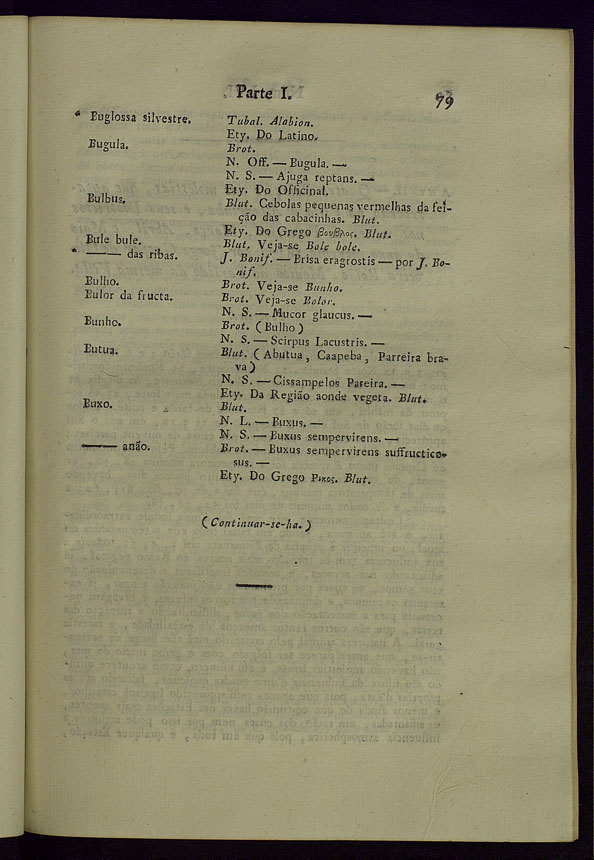 Parte I. 79
* Buglossa silvestre. Tubal. Alabion.
Ety. Do Latino.
Bugula. Brot.
N. Off. — Bugula. —
N. S. — Ajuga reptans. —
Ety. Do Officinal.
Bulbus. Blut. Cebolas pequenas vermelhas da fei-
ção das cabacinhas. Blut.
Ety. Do Grego βουβλος. Blut.
Bule bule. Blut. Veja-se Bole bole.
* —— das ribas. J. Bonif. — Brisa eragrostis — por J. Bo-
nif.
Bulho. Brot. Veja-se Bunho.
Bulor da fructa. Brot. Veja-se Bolor.
N. S. — Mucor glaucus. —
Bunho. Brot. (Bulho)
N. S. — Scirpus Lacustris. —
Butua. Blut. (Abutua, Caapeba, Parreira bra-
va)
N. S. — Cissampelos Pareira. —
Ety. Da Região aonde vegeta. Blut.
Buxo. Blut.
N. L. — Buxus. —
N. S. — Buxus sempervirens. —
—— anão. Brot. — Buxus sempervirens suffructico-
sus. —
Ety. Do Grego Blut.
(Continuar-se-ha.)